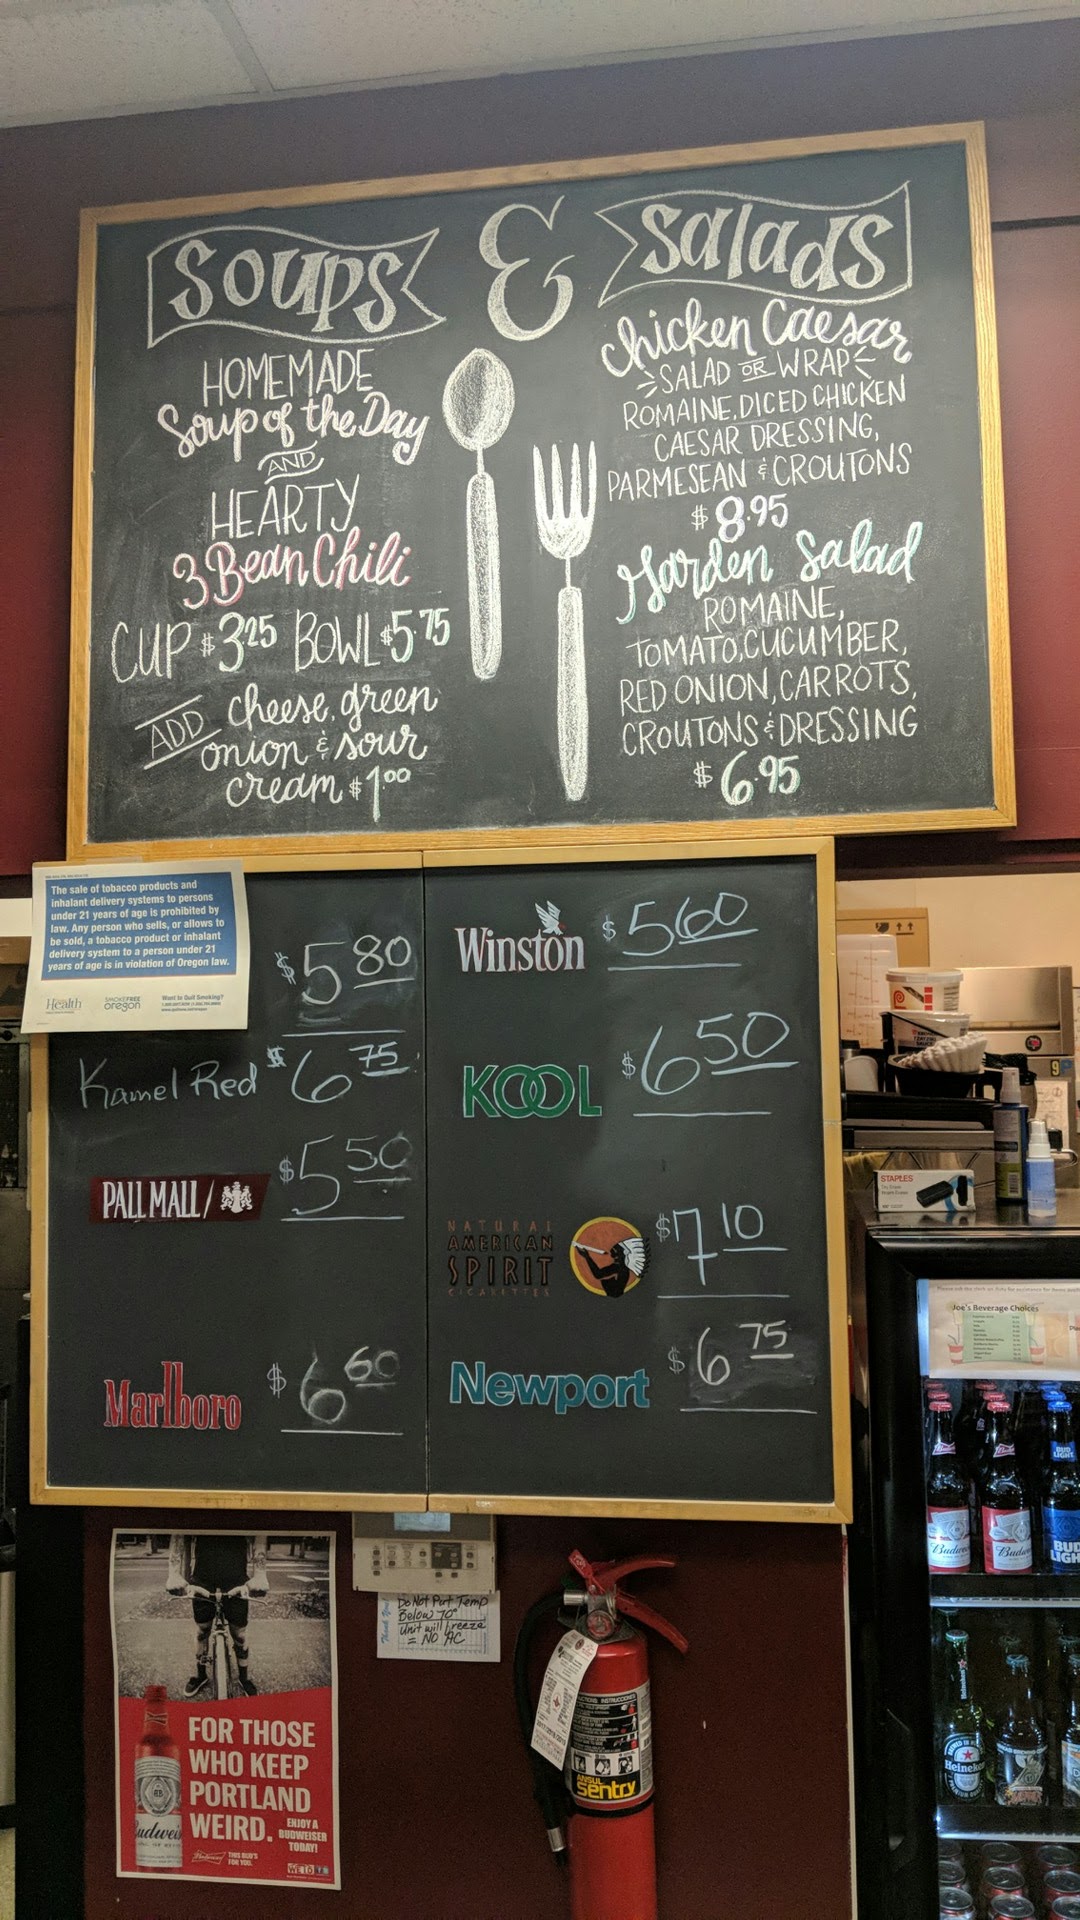 Soups & Salads
HOMEMADE
Soup of the Day
AND
HEARTY
3 Bean Chili
CUP $3.25 BOWL $5.75
ADD cheese, green
onion & sour
cream $1.00
Chicken Caesar
SALAD OR WRAP
ROMAINE, DICED CHICKEN
CAESAR DRESSING,
PARMESEAN & CROUTONS
$8.95
Garden Salad
ROMAINE,
TOMATO, CUCUMBER,
RED ONION, CARROTS,
CROUTONS & DRESSING
$6.95
The sale of tobacco products and
inhalant delivery systems to persons
under 21 years of age is prohibited by
law. Any person who sells, or allows to
be sold, a tobacco product or inhalant
delivery system to a person under 21
years of age is in violation of Oregon law.
Health
SMOKEFREE
oregon
Want to Quit Smoking?
$5 80
Kamel Red $6 75
PALL MALL/ $5 50
Marlboro $6 60
Winston $5 60
KOOL $6 50
NATURAL
AMERICAN
SPIRIT
CIGARETTES
$7 10
Newport $6 75
STAPLES
Joe's Beverage Choices
Budweiser
BUD
LIGHT
BUD
LIGHT
Heineken
Thank You!
Do Not Put Temp
Below 70°
Unit will freeze
= NO AC
FOR THOSE
WHO KEEP
PORTLAND
WEIRD.
ENJOY A
BUDWEISER
TODAY!
Budweiser
THIS BUD'S
FOR YOU.
Budweiser
INSTRUCTIONS
ANSUL
Sentry